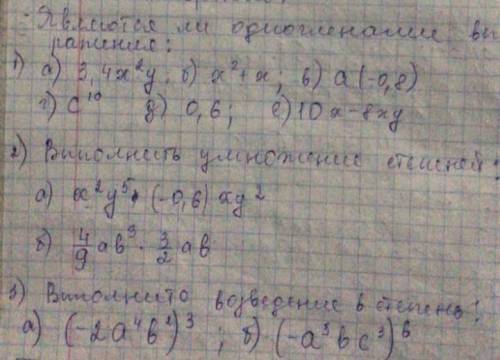 Являются ли одночленами вы
ражения:
1) а) 3,4x²y; б) x²+x; в) a(-0,8)
г) c¹⁰ д) 0,6; е) 10x-8xy
2) Выполнить умножение степеней:
а) x²y⁵·(-0,6)xy²
б) 4/9 ab³ · 3/2 ab
3) Выполнито возведение в степень:
а) (-2a⁴b²)³; б) (-a³bc³)⁶